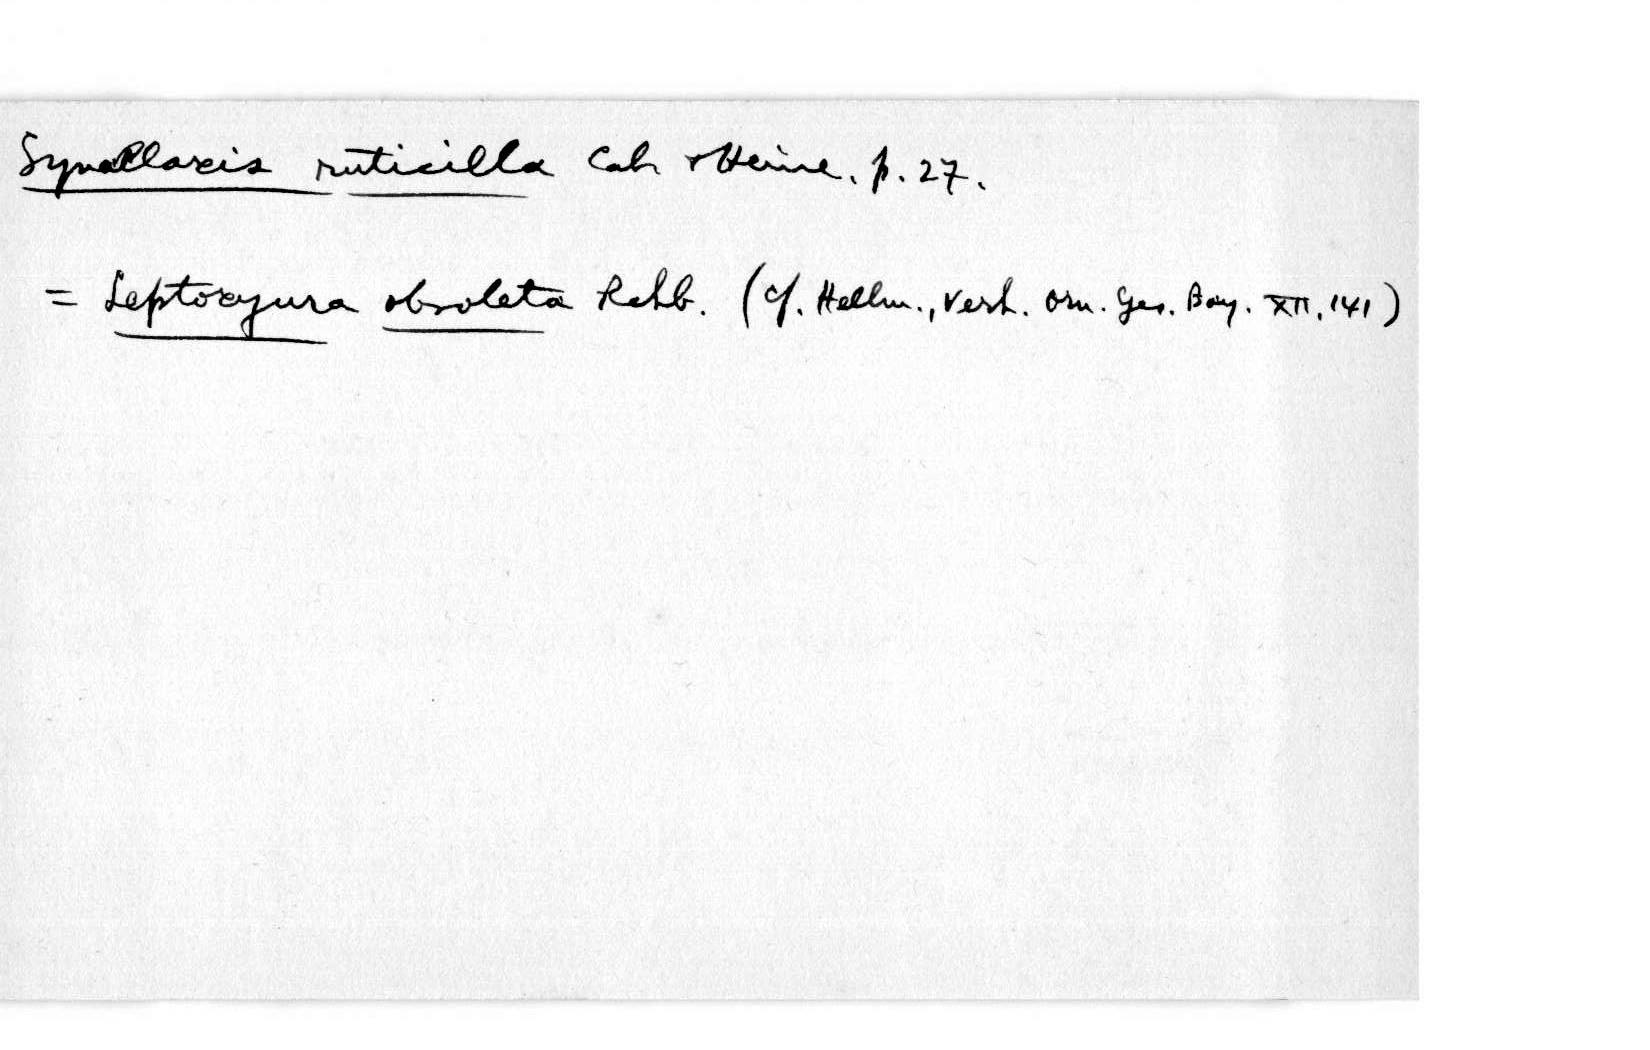 Synallaxis ruticilla Cab & Heine. p. 27.
= Leptoxyura obsoleta Rchb. (cf. Hellm., Verh. Orn. Ges. Bay. XII, 141)